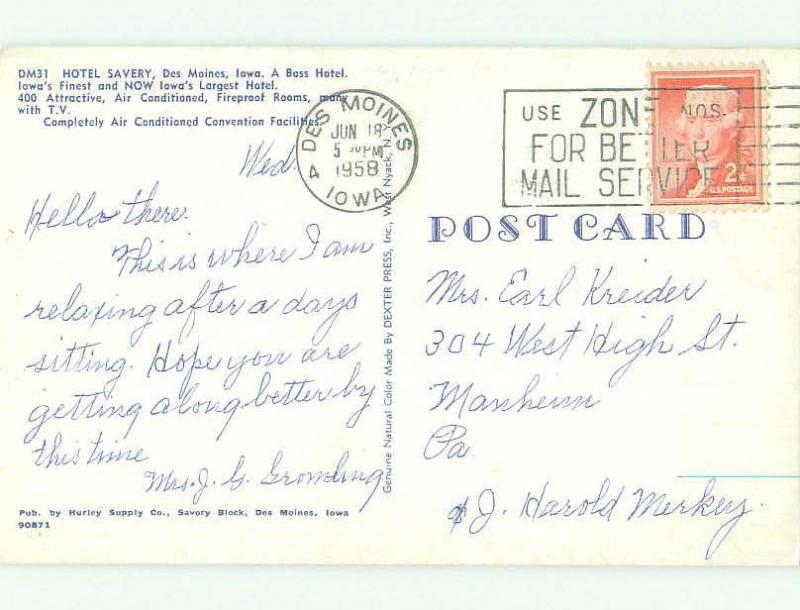 DM31 HOTEL SAVERY, Des Moines, Iowa. A Boss Hotel.
Iowa's Finest and NOW Iowa's Largest Hotel.
400 Attractive, Air Conditioned, Fireproof Rooms, many
with T.V.
Completely Air Conditioned Convention Facilities.
DES MOINES
JUN 18
5 PM
1958
4 IOWA
USE ZONE NOS.
FOR BETTER
MAIL SERVICE
2¢
U.S. POSTAGE
Wed.
Hello there.
This is where I am
relaxing after a days
sitting. Hope you are
getting along better by
this time
Mrs. J. G. Gromling
Pub. by Hurley Supply Co., Savory Block, Des Moines, Iowa
90871
Genuine Natural Color Made By DEXTER PRESS, Inc., West Nyack, N.
POST CARD
Mrs. Earl Kreider
304 West High St.
Manheim
Pa.
J. Harold Merkey.